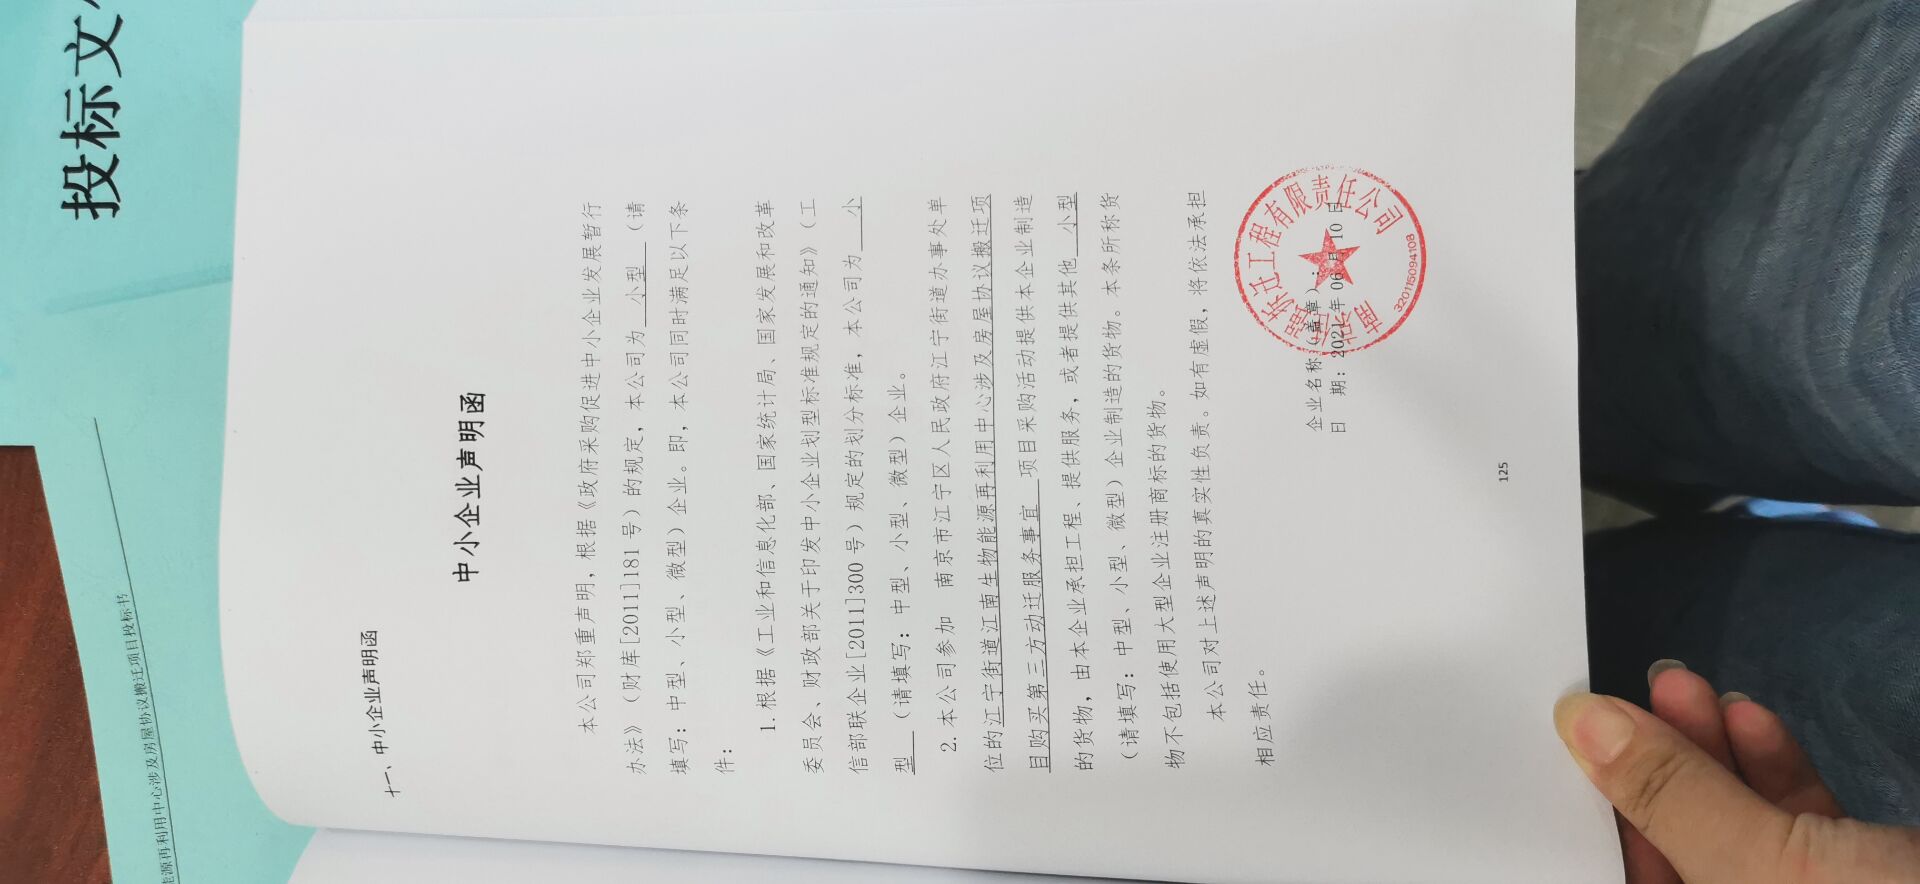 投标文
能源再利用中心涉及房屋协议搬迁项目投标书
十一、中小企业声明函
中小企业声明函
本公司郑重声明，根据《政府采购促进中小企业发展暂行
办法》（财库[2011]181号）的规定，本公司为 小型 （请
填写：中型、小型、微型）企业。即，本公司同时满足以下条
件：
1.根据《工业和信息化部、国家统计局、国家发展和改革
委员会、财政部关于印发中小企业划型标准规定的通知》（工
信部联企业[2011]300号）规定的划分标准，本公司为 小
型 （请填写：中型、小型、微型）企业。
2.本公司参加 南京市江宁区人民政府江宁街道办事处单
位的江宁街道江南生物能源再利用中心涉及房屋协议搬迁项
目购买第三方动迁服务事宜 项目采购活动提供本企业制造
的货物，由本企业承担工程、提供服务，或者提供其他 小型
（请填写：中型、小型、微型）企业制造的货物。本条所称货
物不包括使用大型企业注册商标的货物。
本公司对上述声明的真实性负责。如有虚假，将依法承担
相应责任。
企业名称（盖章）：
日 期：2021年06月10日
南京 强拆迁工程有限责任公司
320115094108
125